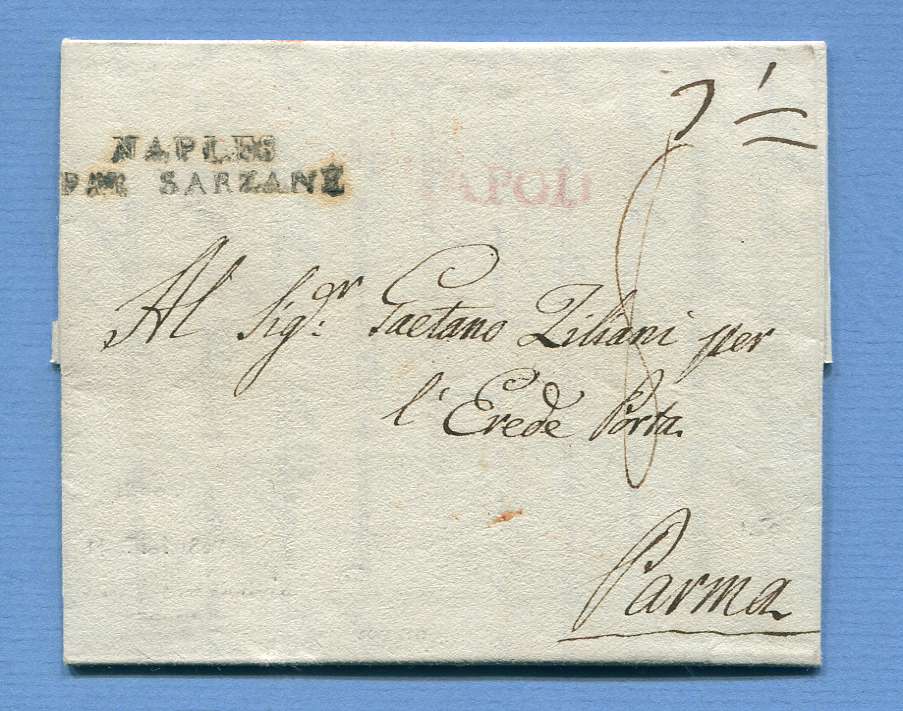 NAPLES
PAR SARZANE
NAPOLI
Al Sig.r Gaetano Ziliani per
l'Erede Porta.
Parma